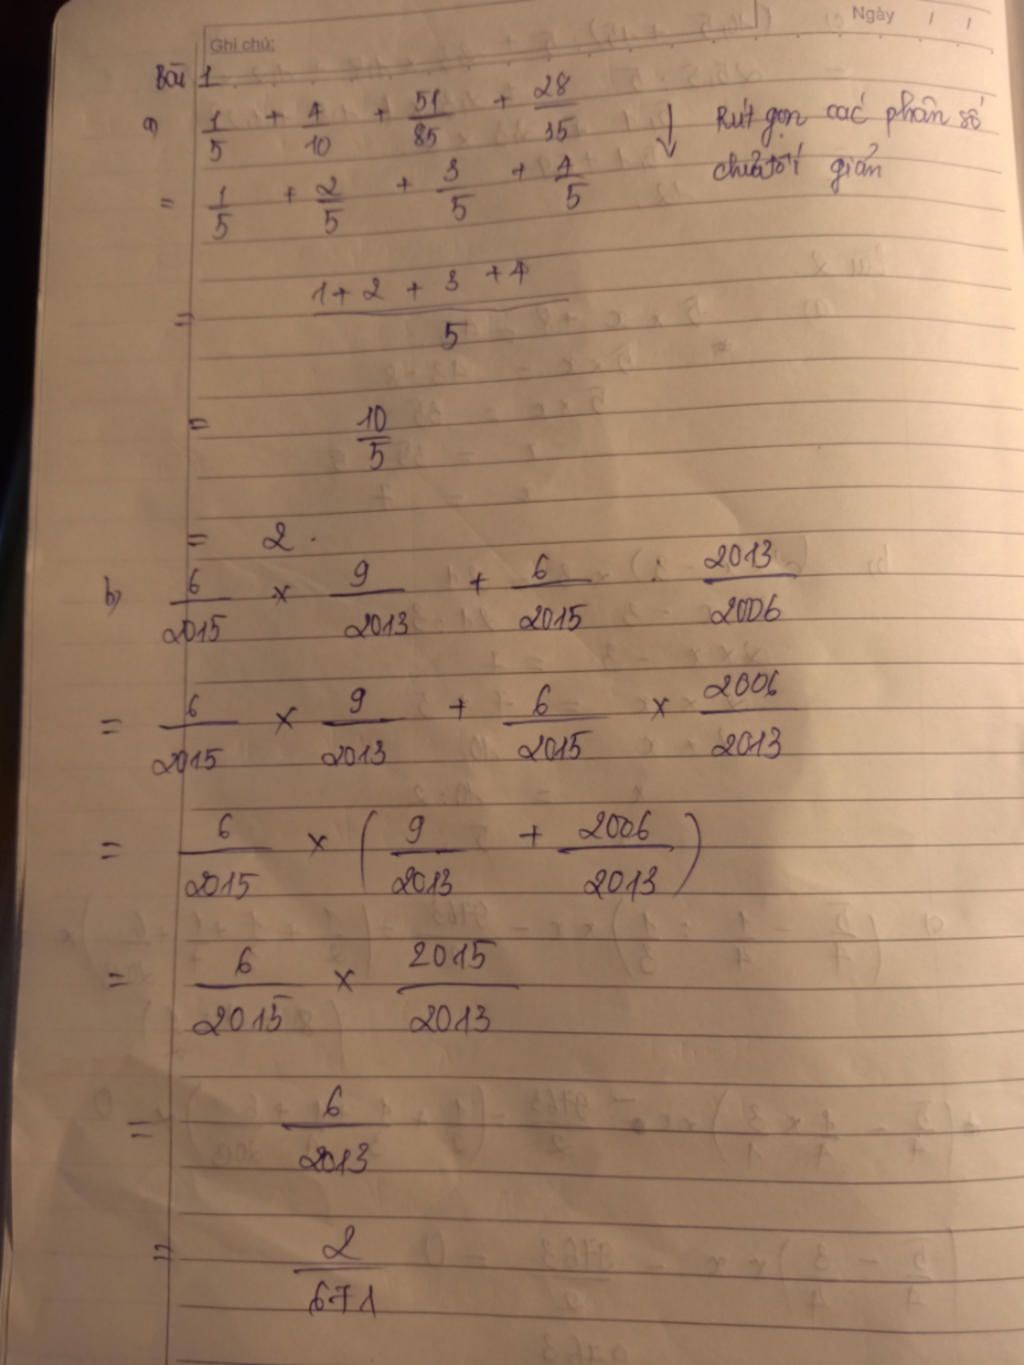 Ghi chú:
Ngày / /
Bài 1
a) 1/5 + 4/10 + 51/85 + 28/35 ↓ Rút gọn các phân số
chưa tối giản
= 1/5 + 2/5 + 3/5 + 4/5
= (1 + 2 + 3 + 4)/5
= 10/5
= 2.
b) 6/2015 × 9/2013 + 6/2015 : 2013/2006
= 6/2015 × 9/2013 + 6/2015 × 2006/2013
= 6/2015 × (9/2013 + 2006/2013)
= 6/2015 × 2015/2013
= 6/2013
= 2/671